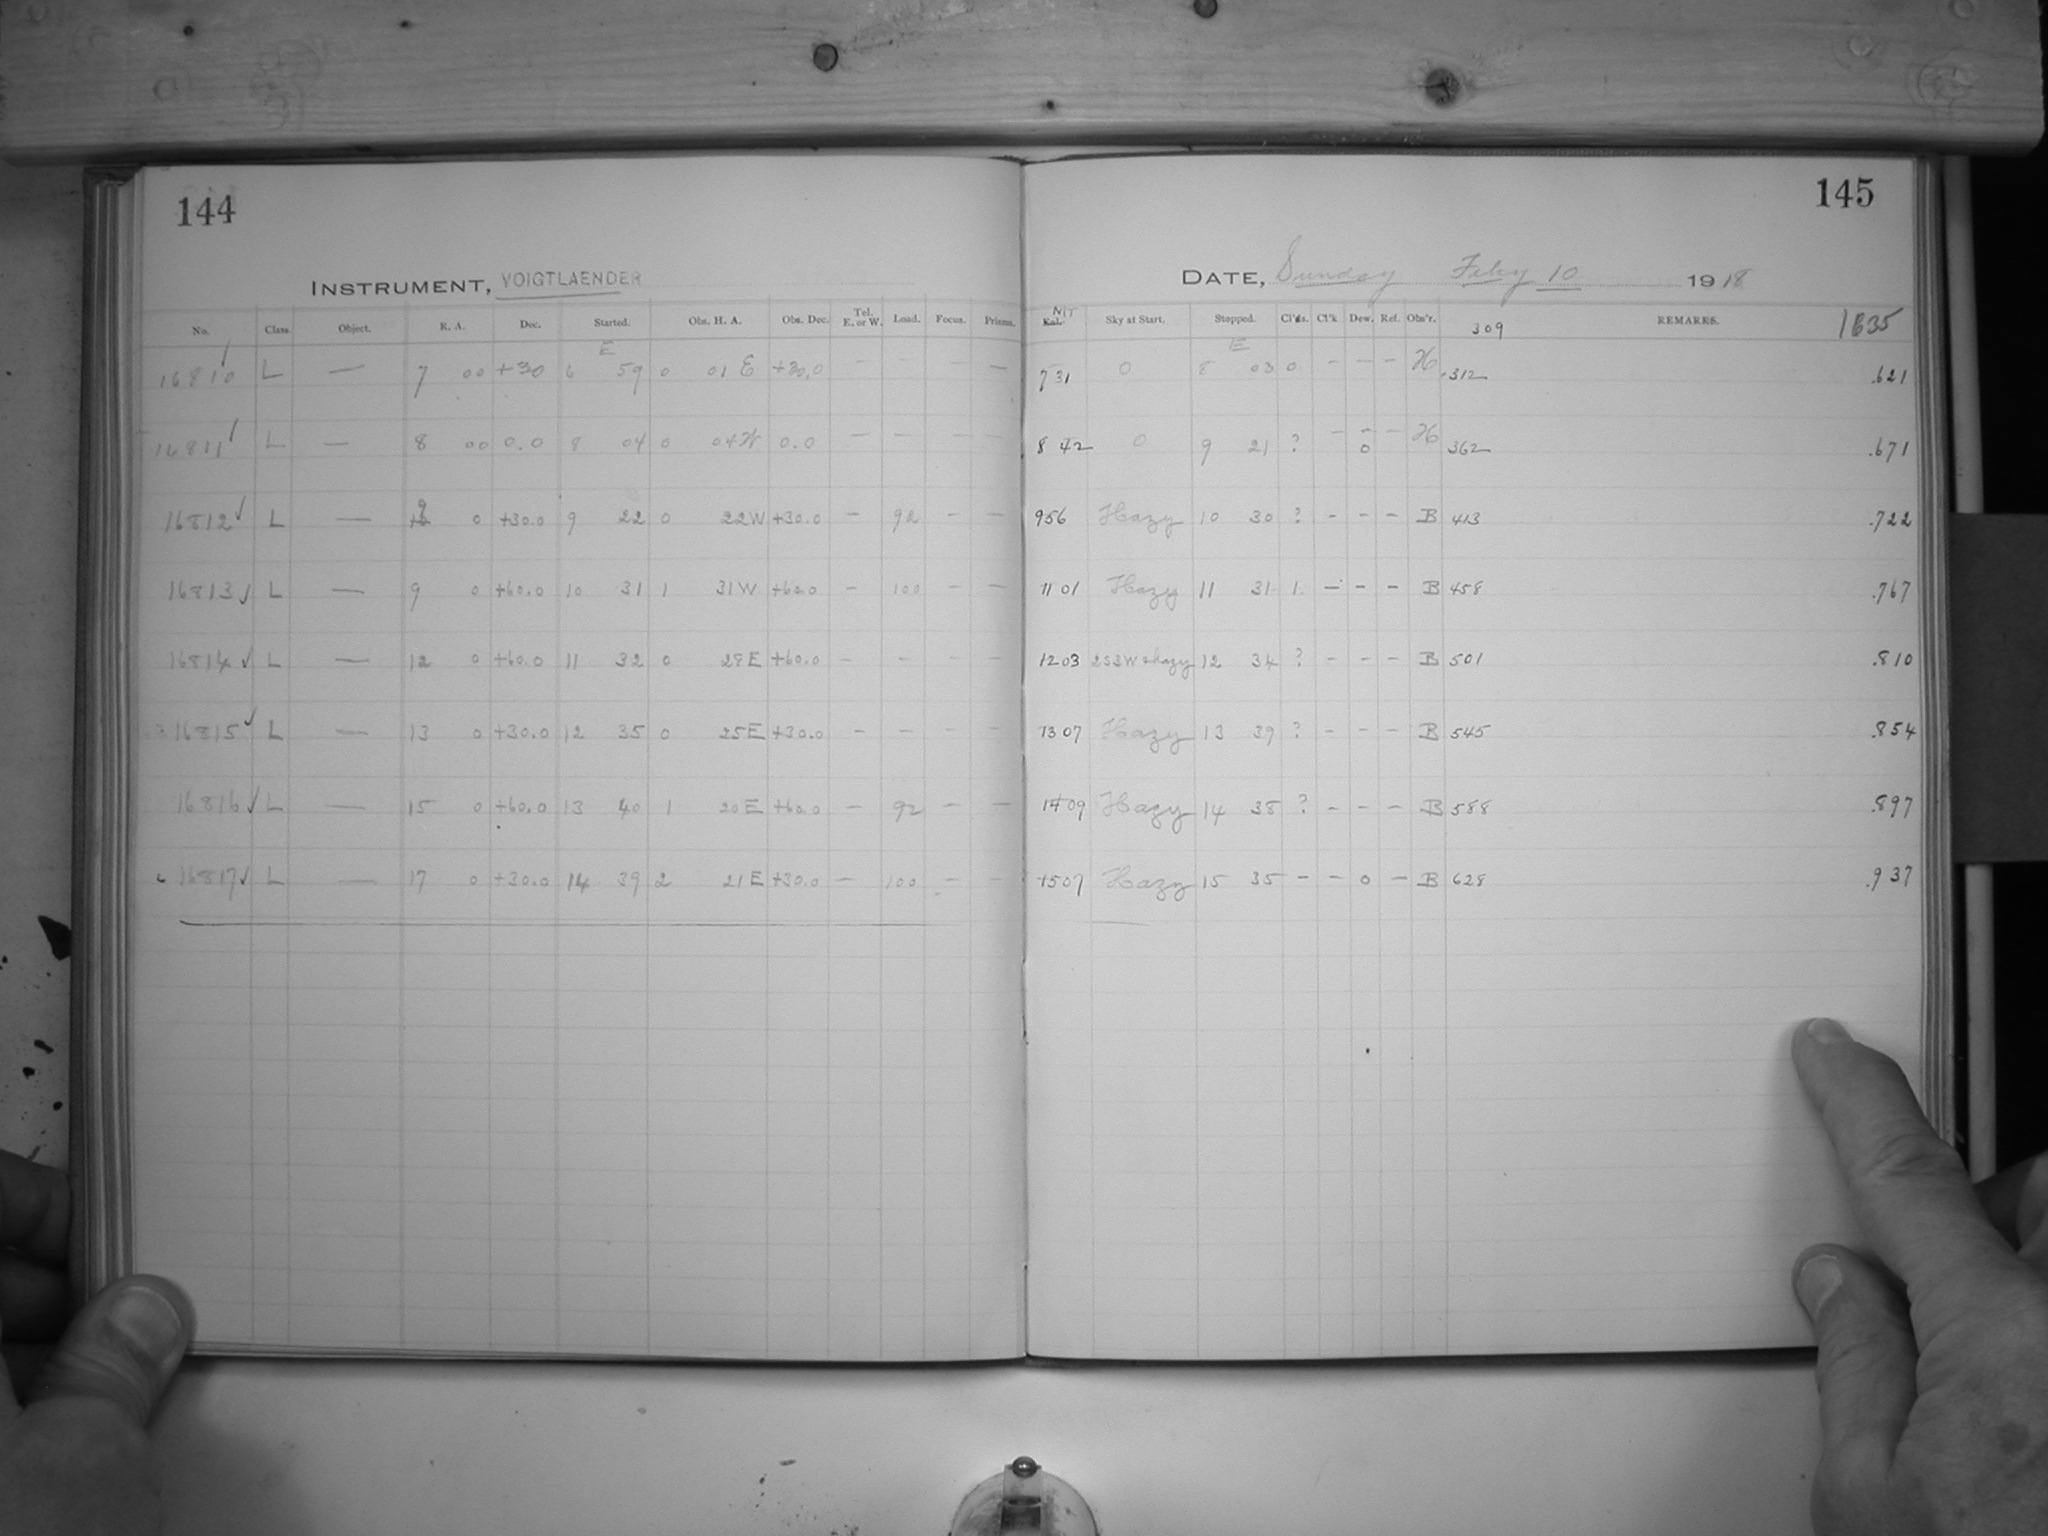 144
INSTRUMENT, VOIGTLAENDER
No. Class. Object. R. A. Dec. Started. Obs. H. A. Obs. Dec. Tel. E. or W. Load. Focus. Prisms.
E
16810 ✓ L — 7 00 +30 6 59 0 01 E +30.0 — — — —
16811 ✓ L — 8 00 0.0 8 04 0 04 W 0.0 — — — —
16812 ✓ L — 9 0 +30.0 9 22 0 22 W +30.0 — 92 — —
16813 ✓ L — 9 0 +60.0 10 31 1 31 W +60.0 — 100 — —
16814 ✓ L — 12 0 +60.0 11 32 0 28 E +60.0 — — — —
16815 ✓ L — 13 0 +30.0 12 35 0 25 E +30.0 — — — —
16816 ✓ L — 15 0 +60.0 13 40 1 20 E +60.0 — 92 — —
16817 ✓ L — 17 0 +30.0 14 39 2 21 E +30.0 — 100 — —
145
DATE, Sunday Feby 10 1918
Sky at Start. Stopped. Cl'ds. Cl'k. Dew. Ref. Obs'r. 309 REMARKS. 1635
E
7 31 0 8 03 0 — — — H .312 .621
8 42 0 9 21 ? — — 0 — H 362 .671
9 56 Hazy 10 30 ? — — — B 413 .722
11 01 Hazy 11 31 1 — — — B 458 .767
12 03 2S2W & hazy 12 34 ? — — — B 501 .810
13 07 Hazy 13 39 ? — — — B 545 .854
14 09 Hazy 14 38 ? — — — B 588 .897
15 07 Hazy 15 35 — — 0 — B 628 .937